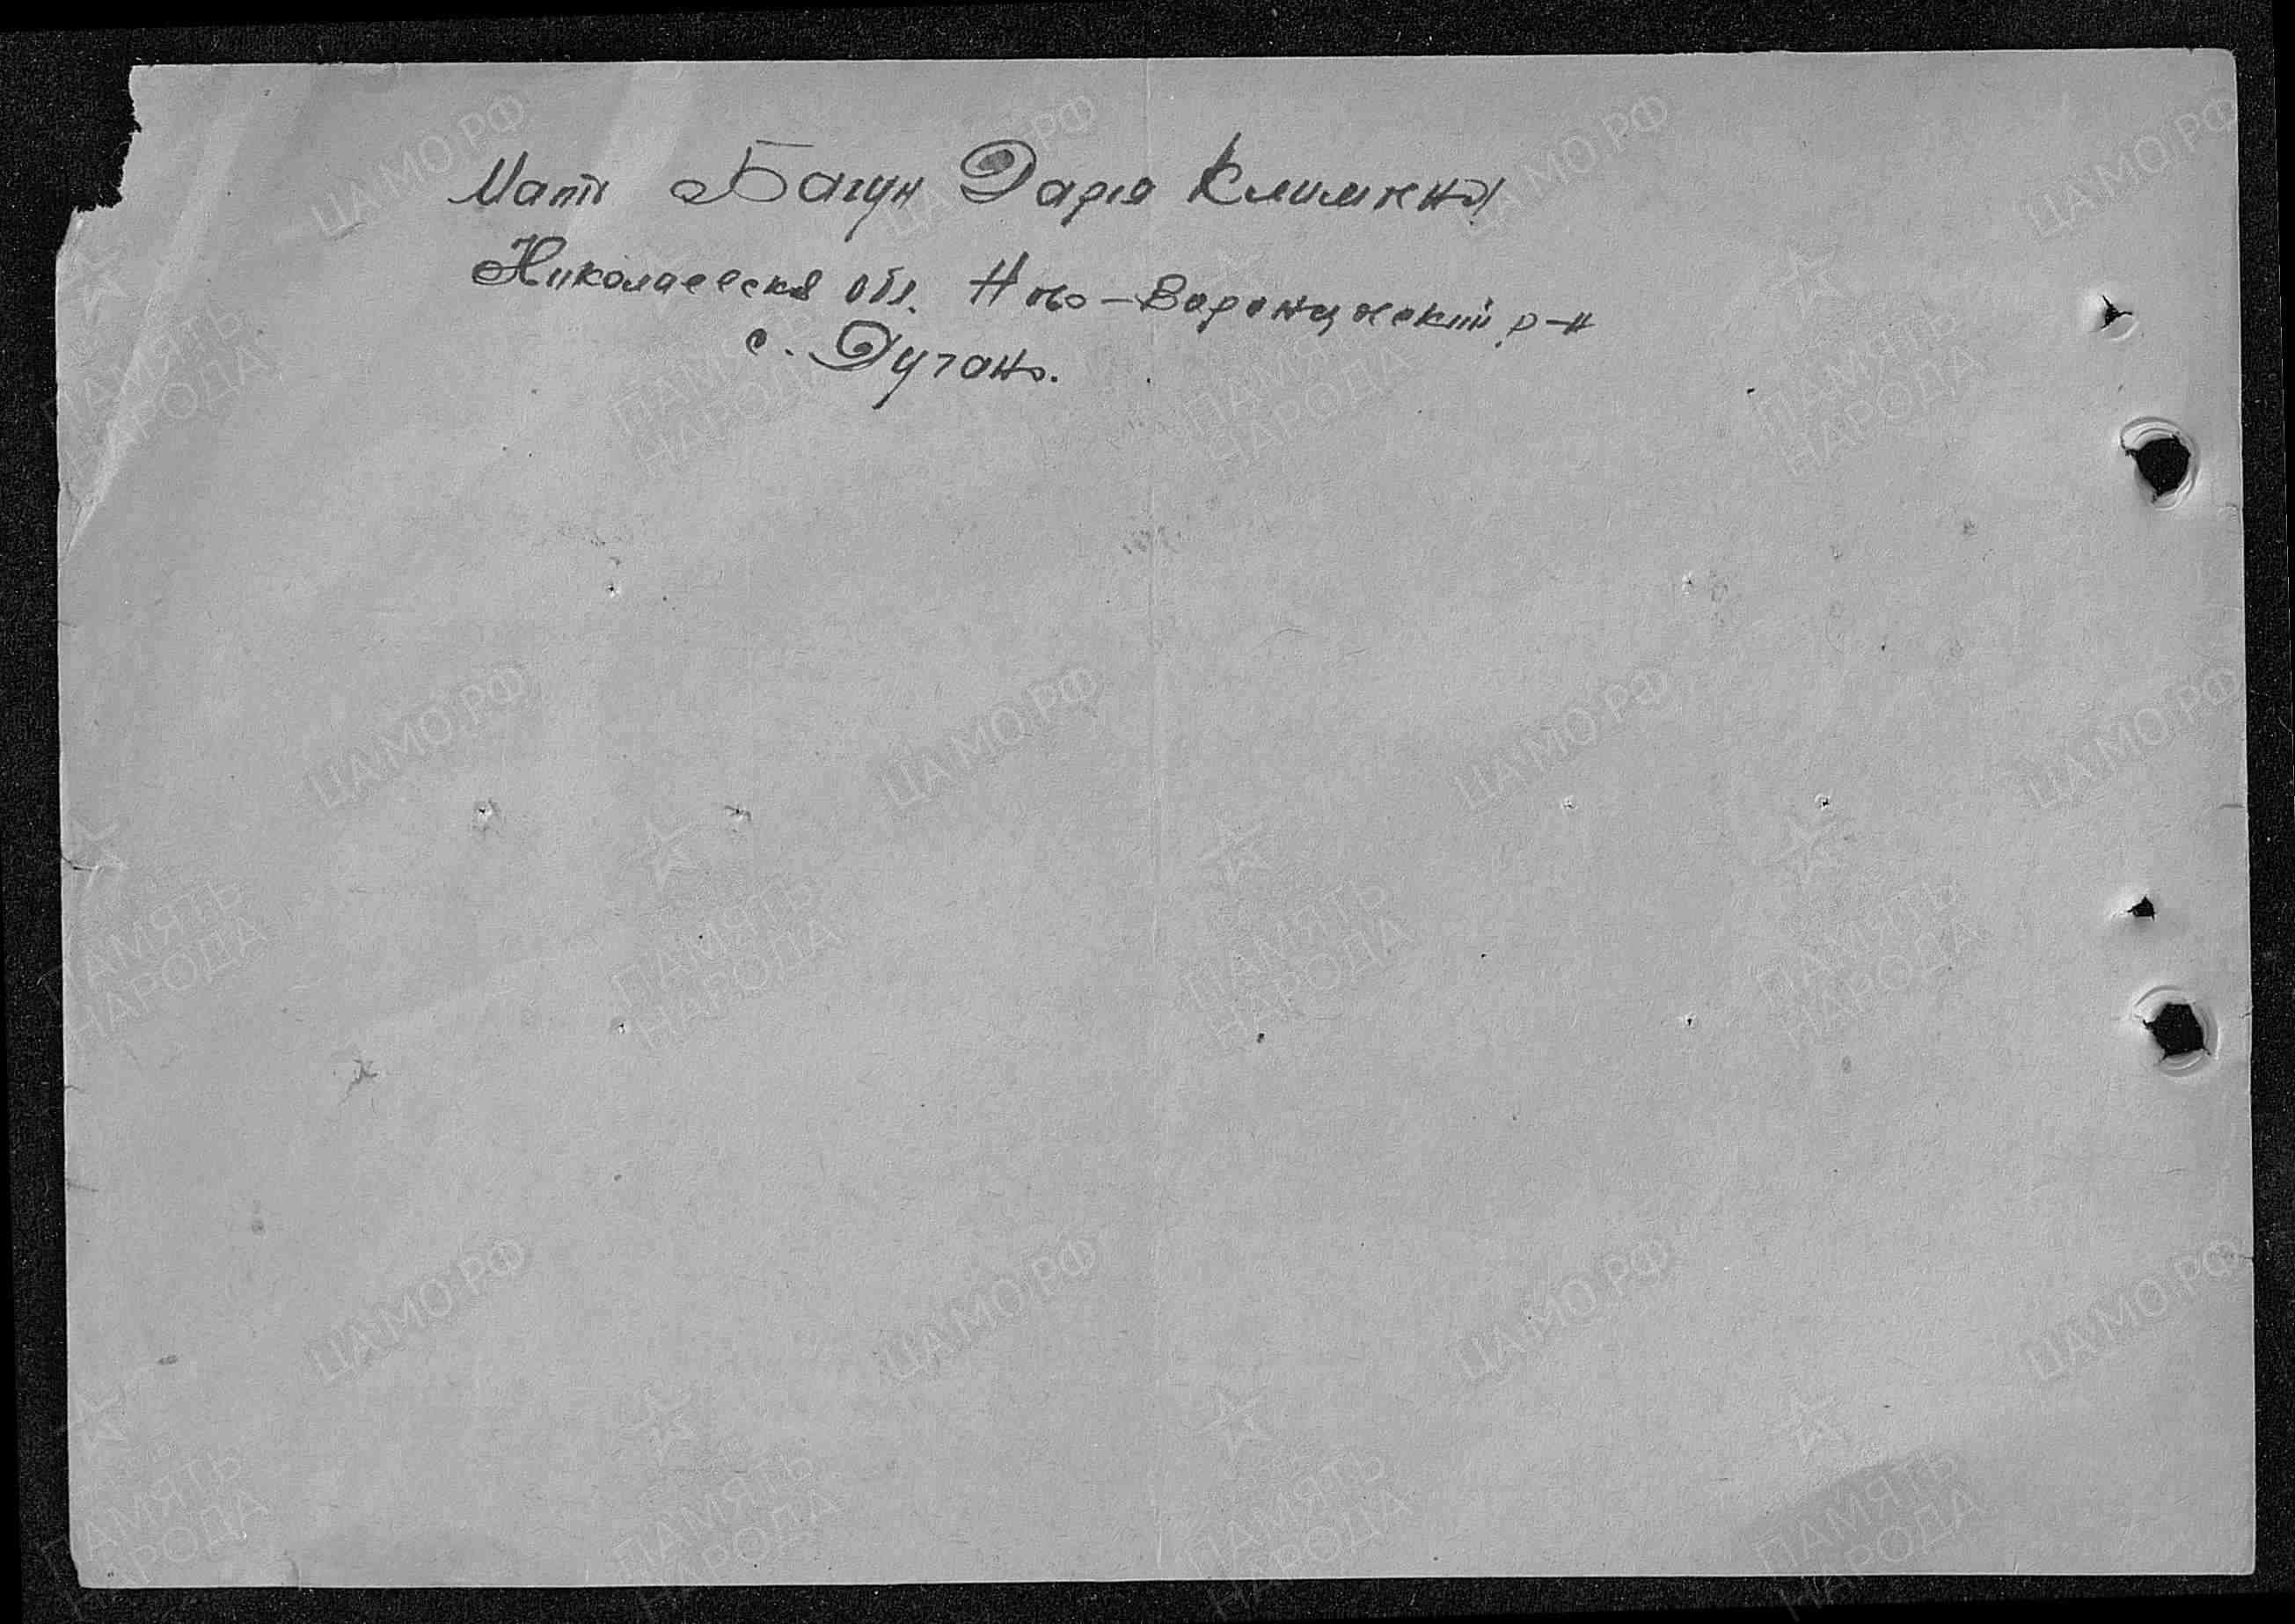 Мать Багун Даря Климивна
Николаевска обл. Ново-Воронцовский р-н
с. Дучано.
ЦАМО.РФ
ПАМЯТЬ
НАРОДА